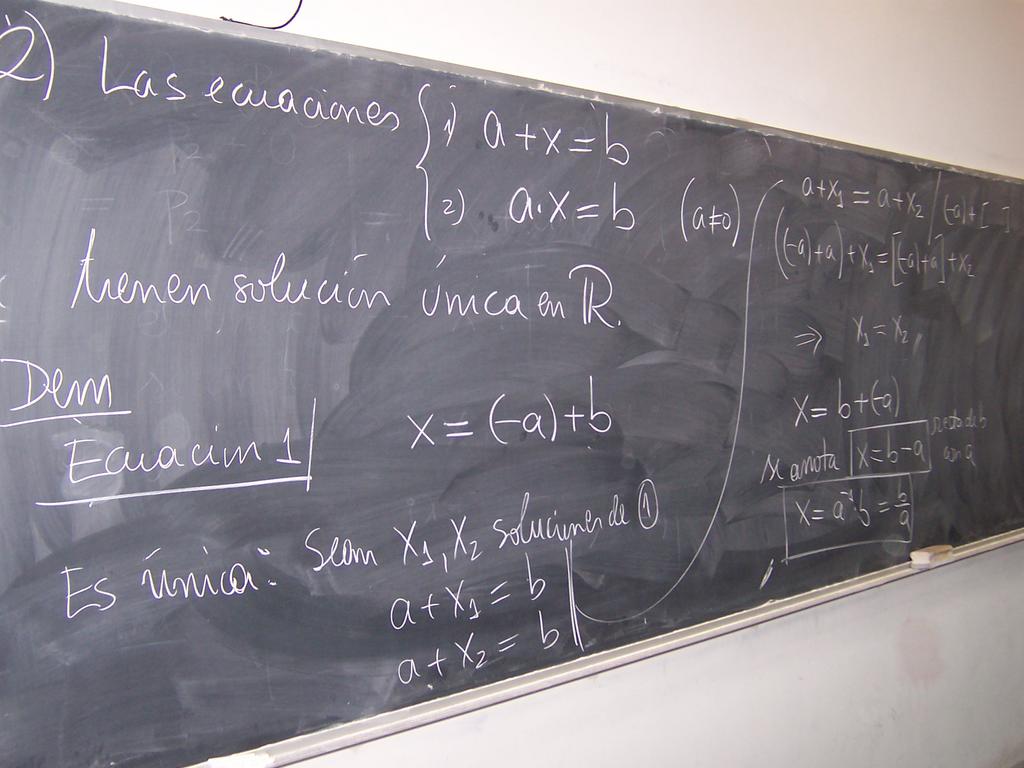 2) Las ecuaciones { 1) a + x = b
2) a · x = b (a≠0)
tienen solución única en ℝ.
Dem
Ecuación 1 x = (-a) + b
Es única: Sean x₁, x₂ soluciones de ①
a + x₁ = b
a + x₂ = b
a + x₁ = a + x₂ / (-a) + [ ]
((-a) + a) + x₁ = [(-a) + a] + x₂
⇒ x₁ = x₂
x = b + (-a)
se anota x = b - a resta de b
con a
x = a⁻¹ b = b/a